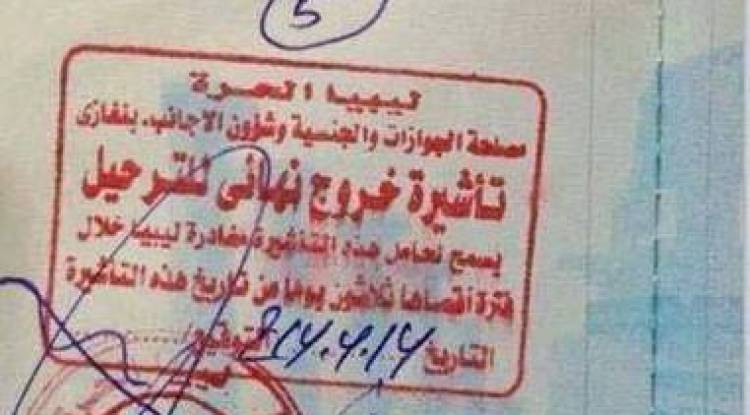 5
ليبيا الحرة
مصلحة الجوازات والجنسية وشؤون الاجانب. بنغازى
تأشيرة خروج نهائى للترحيل
يسمح لحامل هذه التأشيرة مغادرة ليبيا خلال
فترة أقصاها ثلاثون يوما من تاريخ هذه التأشيرة
التاريخ التوقيع/